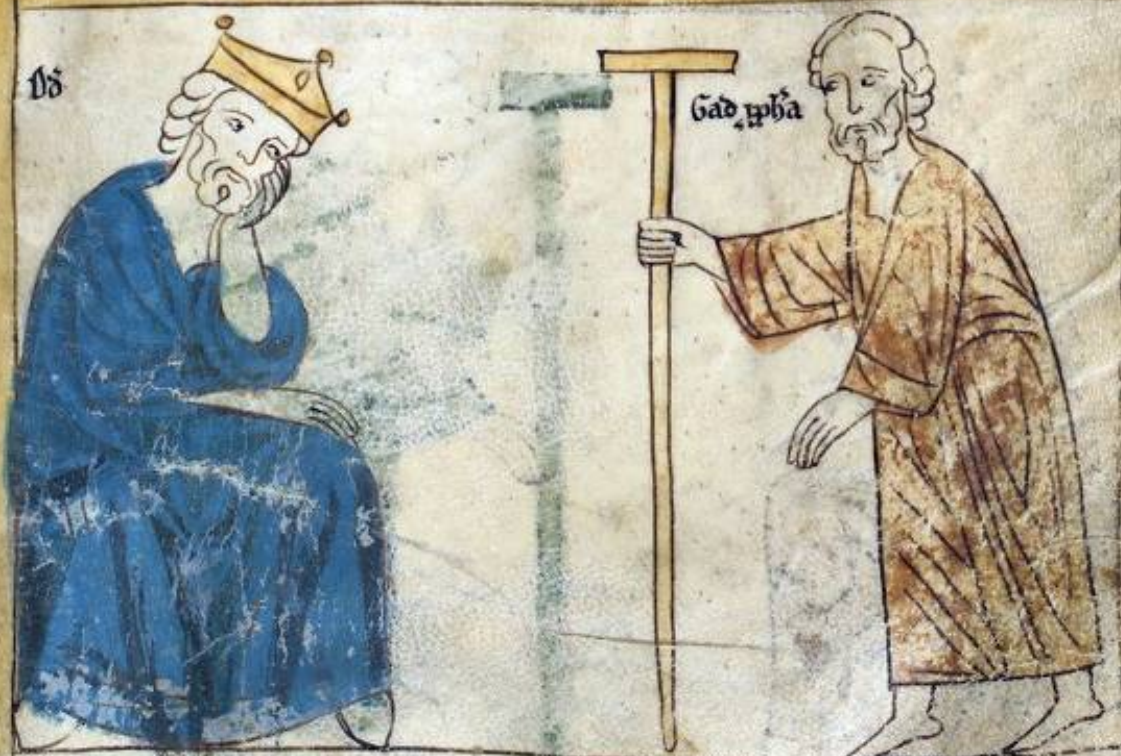 Dd
Gad ppha